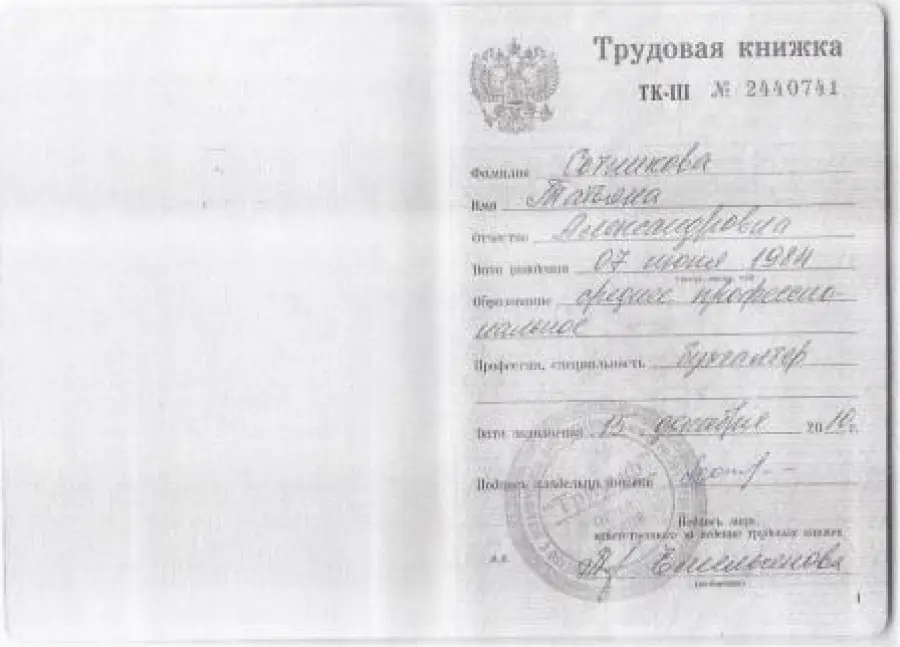 Трудовая книжка
ТК-III № 2440741
Фамилия Сотникова
Имя Татьяна
Отчество Александровна
Дата рождения 07 июня 1984
Образование среднее профессио-
нальное
Профессия, специальность бухгалтер
Дата заполнения 15 декабря 2010 г.
Подпись владельца книжки
"Триумф"
Подпись лица,
ответственного за ведение трудовых книжек
Емельянова
1